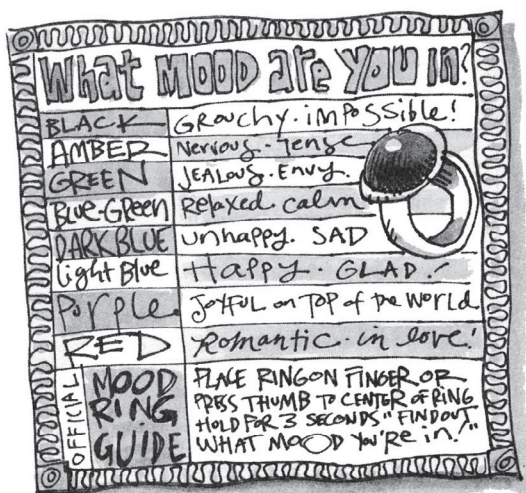 What MOOD are YOU in?
BLACK GROUCHY. imPOSSible!
AMBER Nervous. Tense
GREEN JEALOUS. ENVY.
BLUE-GReeN Relaxed. calm
DARK BLUE unhappy. SAD
Light Blue Happy. GLAD!
Purple JOYFUL on TOP of the World
RED Romantic. in love!
OFFICIAL MOOD RING GUIDE
PLACE RING ON FINGER OR
PRESS THUMB TO CENTER OF RING
HOLD FOR 3 SECONDS "FIND OUT
WHAT MOOD YOU'Re in!"